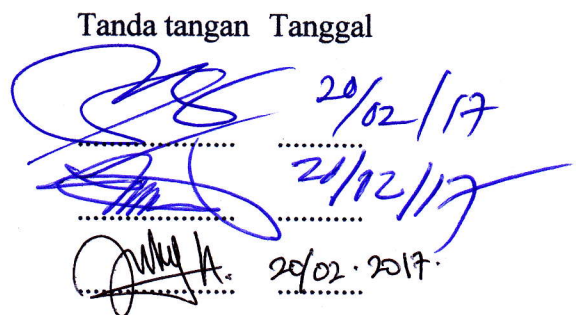 Tanda tangan Tanggal
20/02/17
21/02/17
20/02.2017.